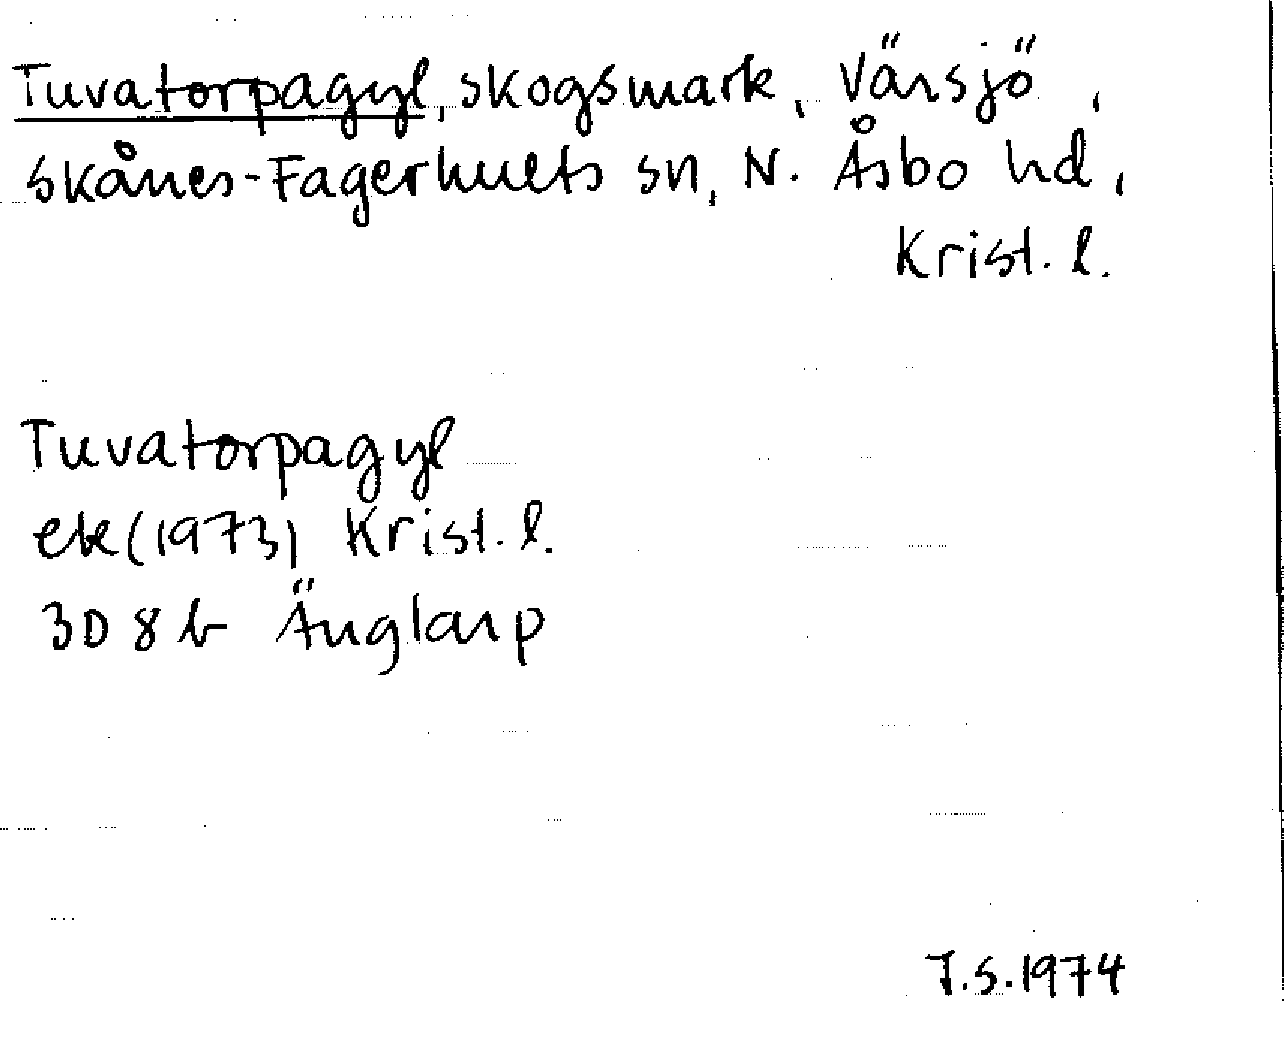 Tuvatorpagyl, skogsmark, Värsjö,
Skånes-Fagerhults sn, N. Åsbo hd,
Krist. l.
Tuvatorpagyl
ek (1973) Krist. l.
3D 8 b Änglarp
J.S. 1974